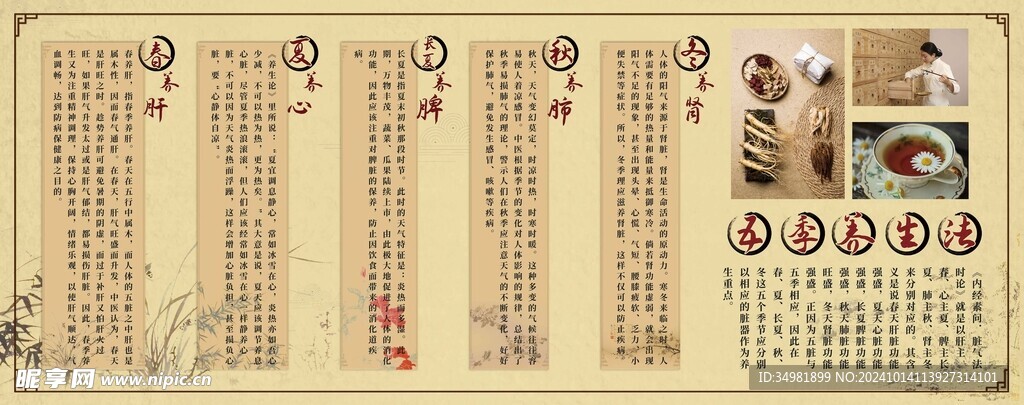 五季养生法
《内经素问．脏气法
时论》就是以肝主
春、心主夏、脾主长
夏、肺主秋、肾主冬
来分别对应的。其含
义是说春天肝脏功能
强盛，夏天心脏功能
强盛，长夏脾脏功能
强盛，秋天肺脏功能
旺盛，冬天肾脏功能
强盛。正因为五脏与
五季相应，因此在
春、夏、长夏、秋、
冬这五个季节应分别
以相应的脏器作为养
生重点。
冬养肾
人体的阳气来源于肾脏，肾是生命活动的原动力。寒冬来临之时，人
体需要有足够的热量和能量来抵御寒冷。倘若肾功能虚弱，就会出现
阳气不足的现象，甚至出现头晕、心慌、气短、腰膝疲软、乏力、小
便失禁等症状。所以，冬季理应滋养肾脏，这样不仅可以防止疾病。
秋养肺
秋天，天气变幻莫定，时凉时热，时寒时暖。这种多变的气候往往容
易使人着凉感冒。中医根据季节的变化对人体影响的规律，总结出了
秋季易损肺气的理论，警示人们在秋季应注意天气的不断变化，好好
保护肺气，避免发生感冒、咳嗽等疾病。
长夏养脾
长夏是指夏末初秋那段时节。此时的天气特征是：炎热而多湿。此
期，万物丰茂，蔬菜、瓜果陆续上市，由此极大地促进了人体的消化
功能，因此应该注重对脾脏的保养，防止因饮食而带来的消化道疾
病。
夏养心
《养生论》里所说："夏宜调息静心，常如冰雪在心，炎热亦如吾心
少减，不可以热为热，更为热矣。"其大意是说，夏天应该调节养息
心脏，尽管夏季热浪滚滚，但人们应该经常如冰雪在心一样静养心
脏，不可以因为天气炎热而浮躁，这样会增加心脏负担，甚至损负心
脏，要"心静体自凉"。
春养肝
春养肝，指春季养肝。春天在五行中属木，而人体的五脏之中肝也是
属木性，因而春气通肝。在春天，肝气旺盛而升发，中医认为，春天
是肝旺之时，趁势养肝可避免暑期的阴虚，而过于补肝又怕肝火过
旺，如果肝气升发太过或是肝气郁结，都易损伤肝脏。因此，春季养
生又为注重精神调理，保持心胸开阔，情绪乐观，以使肝气顺达，气
血调畅，达到防病保健康之目的。
昵享网 www.nipic.cn
ID:34981899 NO:20241014113927314101